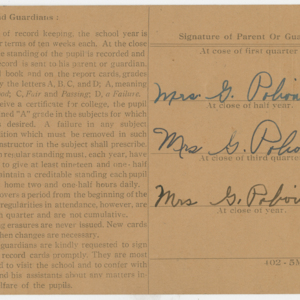 d Guardians:
of record keeping, the school year is
terms of ten weeks each. At the close
standing of the pupil is recorded and
is sent to his parent or guardian.
book end on the report cards, grades
the letters A, B, C, and D; A, meaning
ood; C, Fair and Passing; D, a Failure.
ceive a certificate for college, the pupil
ined "A" grade in the subjects for which
is desired. A failure in any subject
ition which must be removed in such
nstructor in the subject shall prescribe.
n regular standing must, each year, have
to give at least nineteen and one-half
maintain a creditable standing each pupil
home two and one half hours daily.
covers a period from the beginning of the
regularities in attendance, however, are
quarter and are not cumulative.
ng erasures are never issued. New cards
en changes are necessary.
guardians are kindly requested to sign
record cards promptly. They are most
d to visit the school and to center with
nd his assistants about any matters in-
lfare of the pupils.
Signature of Parent Or Guard
At close of first quarter
Mrs G. Poboi
At close of half year.
Mrs G. Poboi
At close of third quarter
Mrs G. Poboi
At close of year.